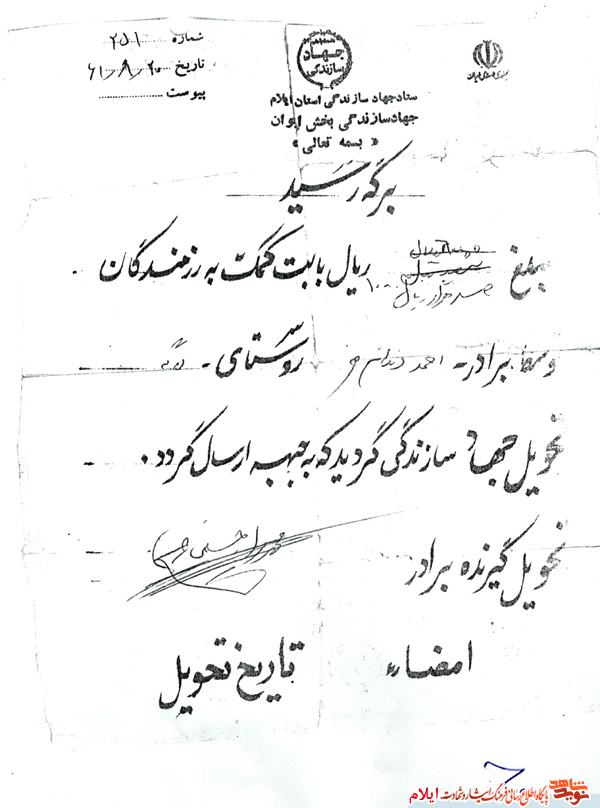 شماره ۲۵۱
تاریخ ۶۱/۸/۲۰
پیوست
جهاد
سازندگی
ستاد جهاد سازندگی استان ایلام
جهاد سازندگی بخش ایوان
« بسمه تعالی »
برگه رسید
مبلغ صد هزار ریال ریال بابت کمک به رزمندگان
توسط برادر - احمد روستای -
تحویل جهاد سازندگی گردید که به جبهه ارسال گردد.
تحویل گیرنده برادر
امضاء تاریخ تحویل
نوید شاهد پایگاه اطلاع رسانی فرهنگ ایثار و شهادت ایلام